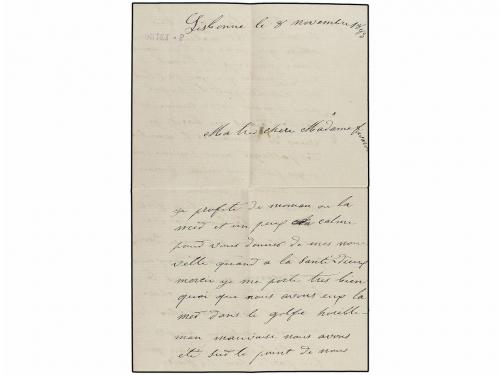 Lisbonne le 8 novembre 1893
Ma tres chere Madame
je profite de moman ou la
mer et un peux calme
pour vous donner de mes nou-
velle quand a la santé dieux
mercie je me porte tres bien
quoi que nous avons eux la
mer dans le golfe horible-
man mauvaise nous avons
été sur le point de nous